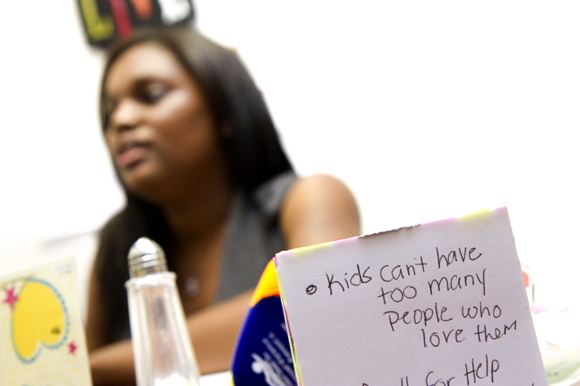 LIVS
• Kids can't have
too many
people who
love them
for Help